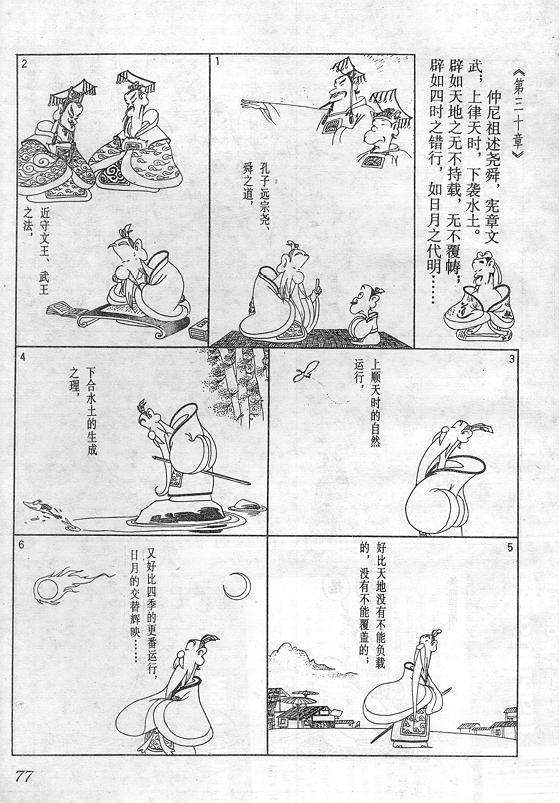 《第三十章》
仲尼祖述尧舜，宪章文
武；上律天时，下袭水土。
辟如天地之无不持载，无不覆帱，
辟如四时之错行，如日月之代明……
1
孔子远宗尧、
舜之道，
2
近守文王、武王
之法，
3
上顺天时的自然
运行，
4
下合水土的生成
之理，
5
好比天地没有不能负载
的，没有不能覆盖的；
6
又好比四季的更番运行，
日月的交替辉映……
77